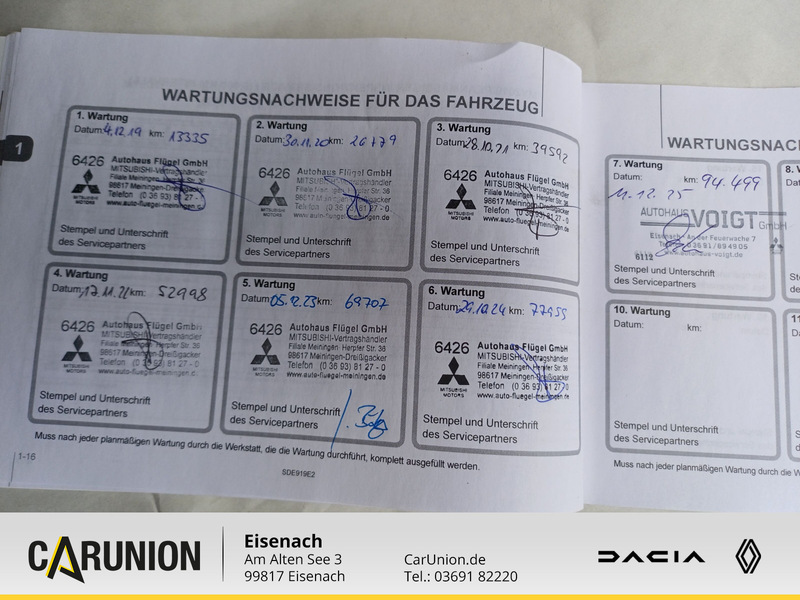 WARTUNGSNACHWEISE FÜR DAS FAHRZEUG
1
1. Wartung
Datum: 4.12.19 km: 13335
6426 Autohaus Flügel GmbH
MITSUBISHI-Vertragshändler
98617 Meiningen-Dreißigacker
Telefon (0 36 93) 81 27 - 0
MITSUBISHI
MOTORS
www.auto-fluegel-meiningen.de
Stempel und Unterschrift
des Servicepartners
2. Wartung
Datum: 30.11.20 km: 26179
6426 Autohaus Flügel GmbH
MITSUBISHI-Vertragshändler
98617 Meiningen-Dreißigacker
Telefon (0 36 93) 81 27 - 0
MITSUBISHI
MOTORS
www.auto-fluegel-meiningen.de
Stempel und Unterschrift
des Servicepartners
3. Wartung
Datum: 28.10.21 km: 39592
6426 Autohaus Flügel GmbH
MITSUBISHI-Vertragshändler
Filiale Meiningen, Herpfer Str. 36
98617 Meiningen-Dreißigacker
Telefon (0 36 93) 81 27 - 0
MITSUBISHI
MOTORS
www.auto-fluegel-meiningen.de
Stempel und Unterschrift
des Servicepartners
4. Wartung
Datum: 17.11.22 km: 52998
6426 Autohaus Flügel GmbH
MITSUBISHI-Vertragshändler
Filiale Meiningen, Herpfer Str. 36
98617 Meiningen-Dreißigacker
Telefon (0 36 93) 81 27 - 0
MITSUBISHI
MOTORS
www.auto-fluegel-meiningen.de
Stempel und Unterschrift
des Servicepartners
5. Wartung
Datum: 05.12.23 km: 69707
6426 Autohaus Flügel GmbH
MITSUBISHI-Vertragshändler
Filiale Meiningen, Herpfer Str. 36
98617 Meiningen-Dreißigacker
Telefon (0 36 93) 81 27 - 0
MITSUBISHI
MOTORS
www.auto-fluegel-meiningen.de
Stempel und Unterschrift
des Servicepartners
6. Wartung
Datum: 29.10.24 km: 77955
6426 Autohaus Flügel GmbH
MITSUBISHI-Vertragshändler
Filiale Meiningen, Herpfer Str. 36
98617 Meiningen-Dreißigacker
Telefon (0 36 93) 81 27 - 0
MITSUBISHI
MOTORS
www.auto-fluegel-meiningen.de
Stempel und Unterschrift
des Servicepartners
Muss nach jeder planmäßigen Wartung durch die Werkstatt, die die Wartung durchführt, komplett ausgefüllt werden.
1-16
SDE919E2
WARTUNGSNAC
7. Wartung
Datum: km: 94.499
11.12.25
AUTOHAUS VOIGT GmbH
Eisenach - An der Feuerwache 7
03691/694905
www.autohaus-voigt.de
6112
Stempel und Unterschrift
des Servicepartners
8. W
10. Wartung
Datum: km:
Stempel und Unterschrift
des Servicepartners
11
Muss nach jeder planmäßigen Wartung durch die W
CARUNION
Eisenach
Am Alten See 3
99817 Eisenach
CarUnion.de
Tel.: 03691 82220
DACIA